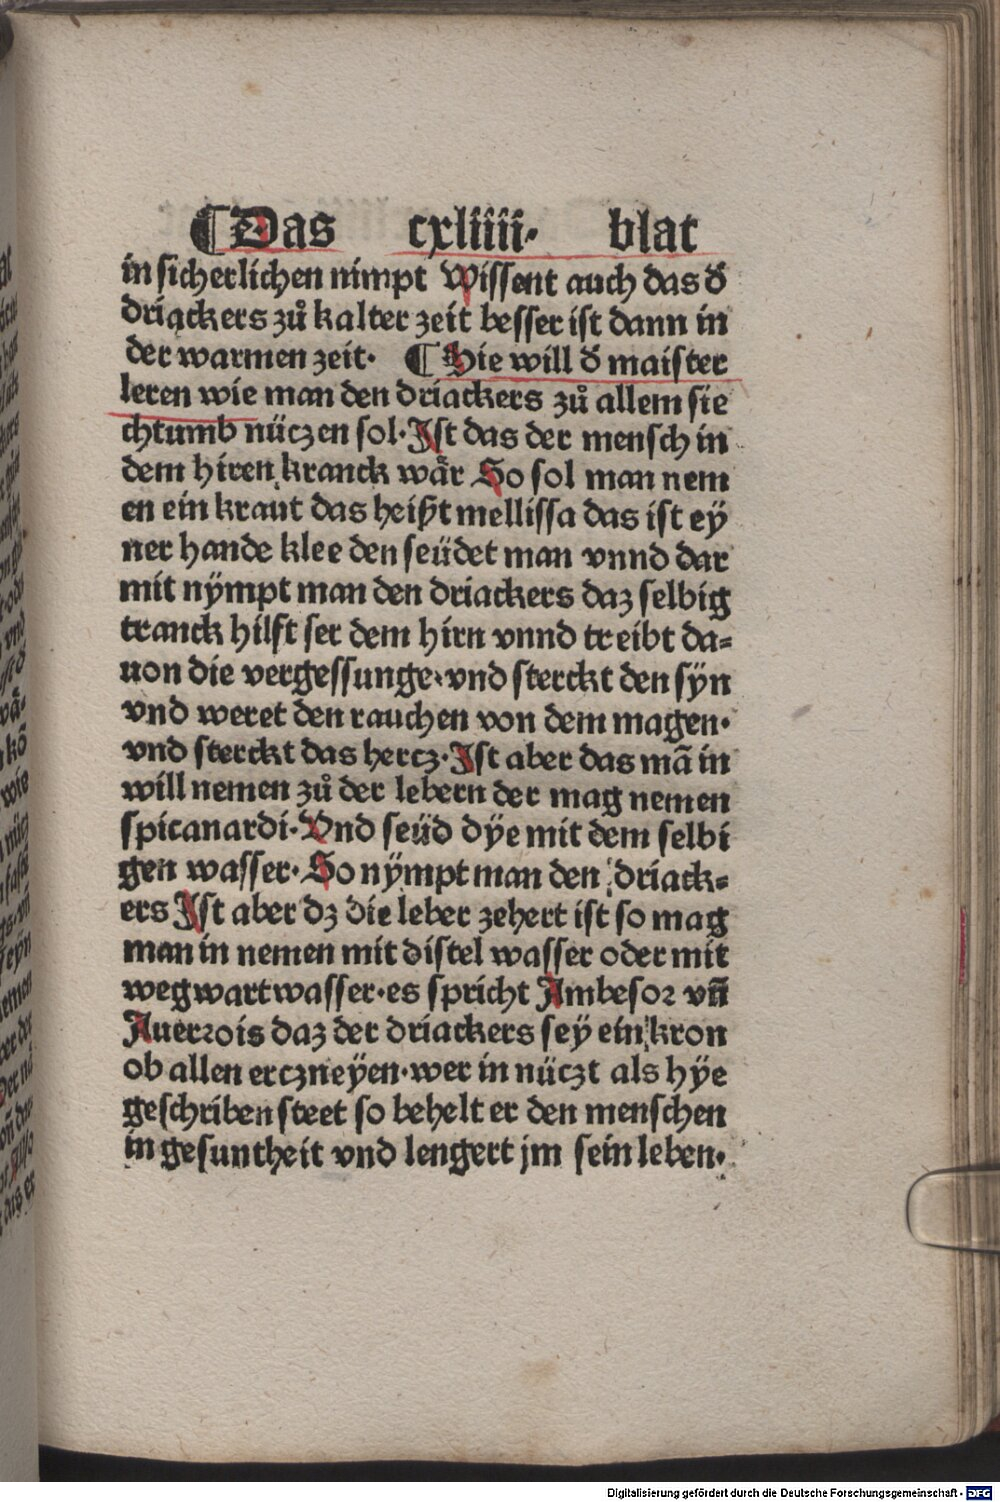 ¶ Das cxliiii· blat
in sicherlichen nimpt Wissent auch das d̄
driackers zů kalter zeit besser ist dann in
der warmen zeit· ¶ Hie will d̄ maister
leren wie man den driackers zů allem sie
chtumb nüczen sol· Ist das der mensch in
dem hiren kranck wår So sol man nem
en ein kraut das heißt mellissa das ist eÿ
ner hande klee den seüdet man vnnd dar
mit nÿmpt man den driackers daz selbig
tranck hilft ser dem hirn vnnd treibt da=
uon die vergessunge· vnd sterckt den sÿn
vnd weret den rauchen von dem magen·
vnd sterckt das hercz· Ist aber das mā in
will nemen zů der lebern der mag nemen
spicanardi· Vnd seüd dÿe mit dem selbi
gen wasser· So nÿmpt man den driack=
ers Ist aber dz die leber zehert ist so mag
man in nemen mit distel wasser oder mit
wegwart wasser· es spricht Ambesor vn̄
Auerrois daz der driackers sey ein kron
ob allen erczneÿen· wer in nüczt als hÿe
geschriben steet so behelt er den menschen
in gesuntheit vnd lengert jm sein leben·
Digitalisierung gefördert durch die Deutsche Forschungsgemeinschaft - DFG